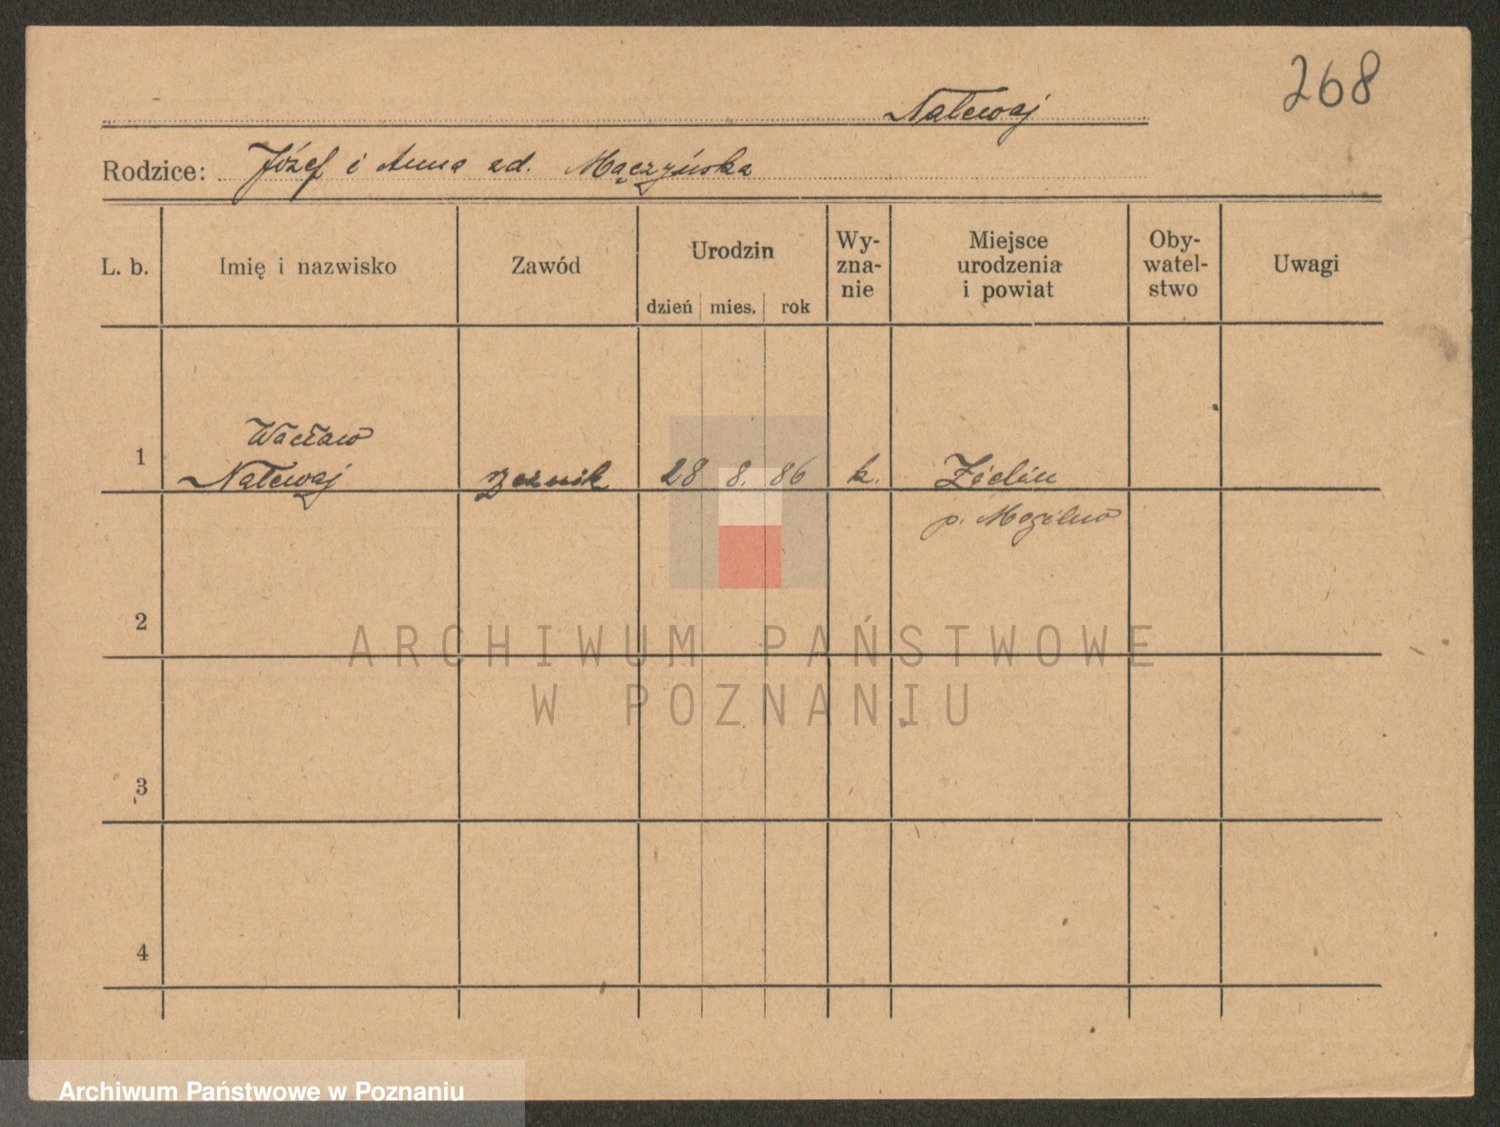 268
Nalewaj
Rodzice: Józef i Anna zd. Mączyńska
L. b.
Imię i nazwisko
Zawód
Urodzin
dzień mies. rok
Wy-
zna-
nie
Miejsce
urodzenia
i powiat
Oby-
watel-
stwo
Uwagi
Wacław
1 Nalewaj 28 8. 86 k.
p. Mogilno
2
3
4
ARCHIWUM PAŃSTWOWE
W POZNANIU
Archiwum Państwowe w Poznaniu